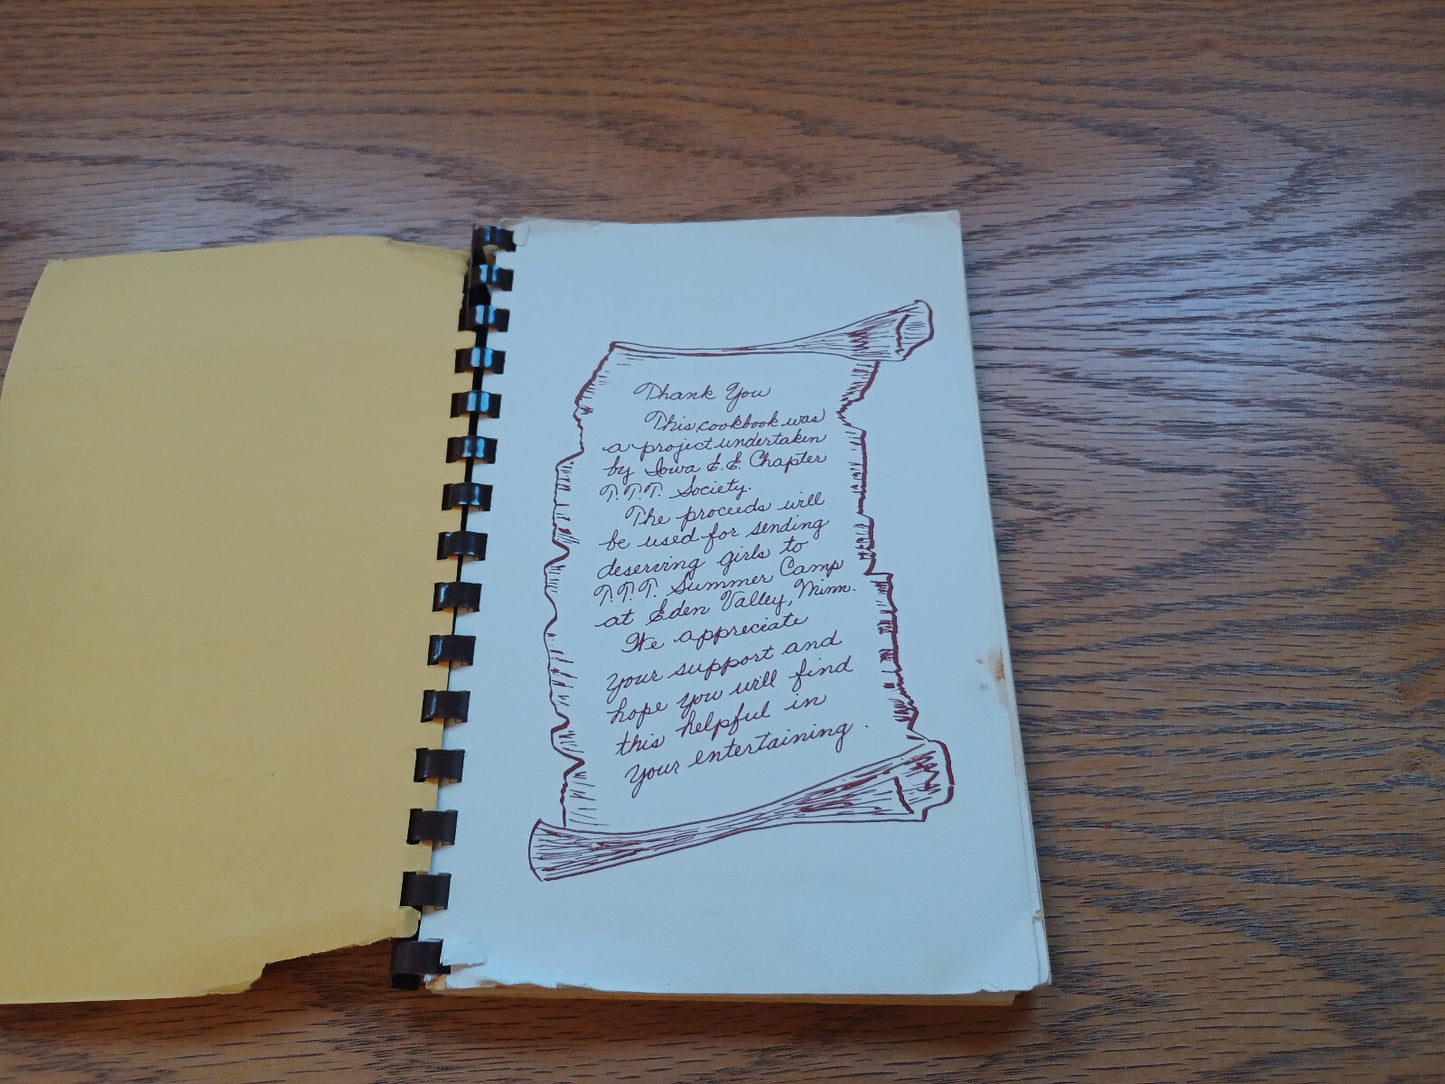 Thank You
This cookbook was
a project undertaken
by Iowa E.E. Chapter
T.T.T. Society.
The proceeds will
be used for sending
deserving girls to
T.T.T. Summer Camp
at Eden Valley, Minn.
We appreciate
your support and
hope you will find
this helpful in
your entertaining.